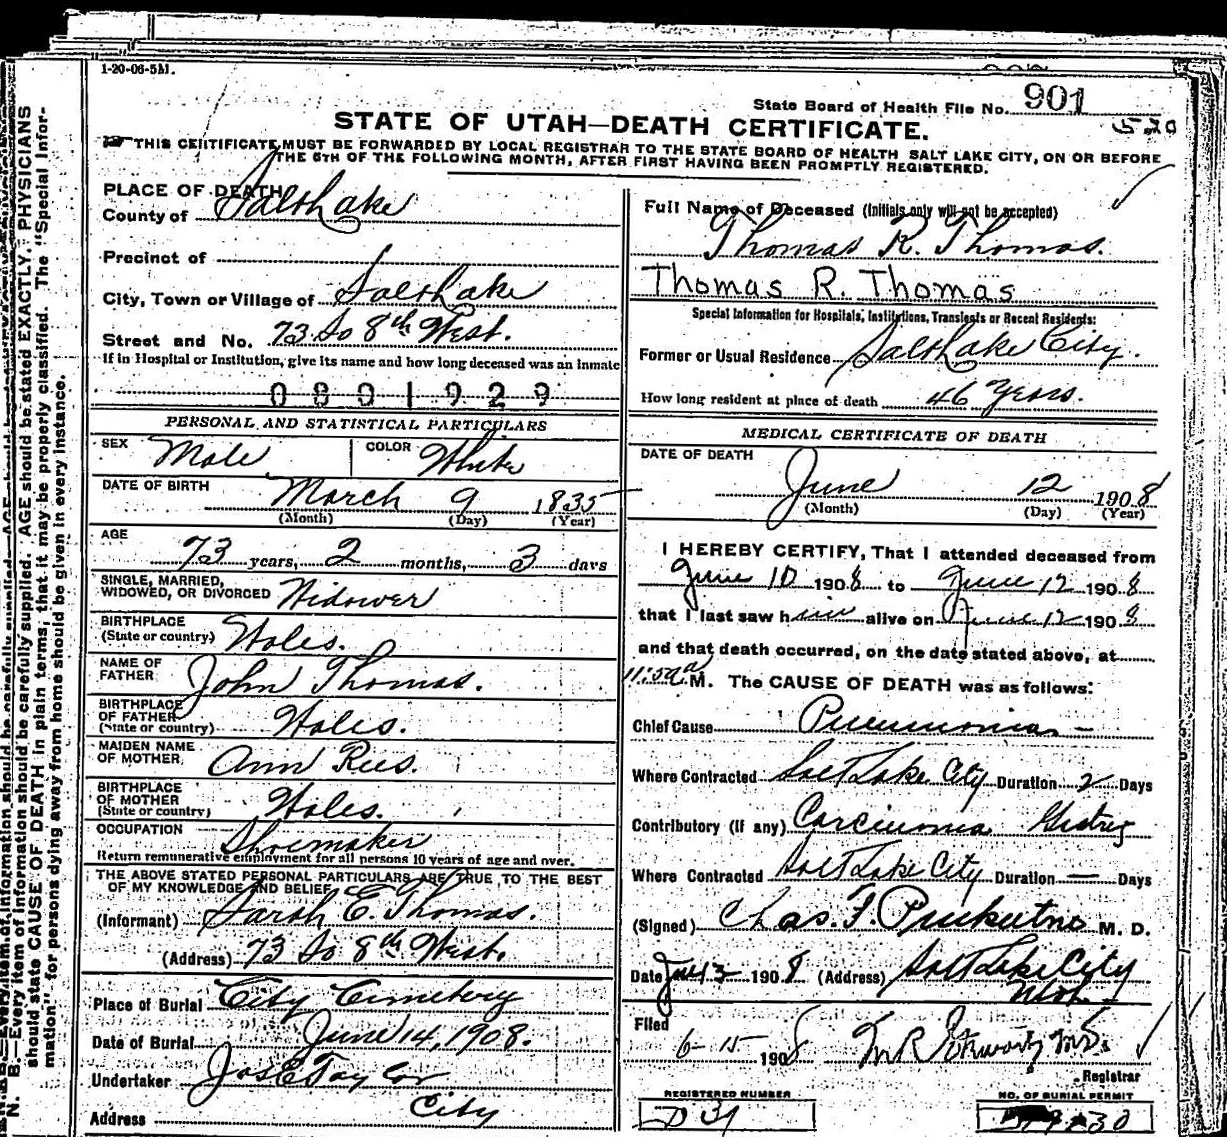 1-20-06-5M.
State Board of Health File No. 901
STATE OF UTAH—DEATH CERTIFICATE.
THIS CERTIFICATE MUST BE FORWARDED BY LOCAL REGISTRAR TO THE STATE BOARD OF HEALTH SALT LAKE CITY, ON OR BEFORE
THE 5TH OF THE FOLLOWING MONTH, AFTER FIRST HAVING BEEN PROMPTLY REGISTERED.
PLACE OF DEATH
County of Salt Lake
Precinct of
City, Town or Village of Salt Lake
Street and No. 73 So 8th West.
If in Hospital or Institution, give its name and how long deceased was an inmate
0801929
PERSONAL AND STATISTICAL PARTICULARS
SEX Male COLOR White
DATE OF BIRTH March 9 1835
(Month) (Day) (Year)
AGE
73 years, 2 months, 3 days
SINGLE, MARRIED,
WIDOWED, OR DIVORCED Widower
BIRTHPLACE
(State or country) Wales.
NAME OF
FATHER John Thomas.
BIRTHPLACE
OF FATHER
(State or country) Wales.
MAIDEN NAME
OF MOTHER Ann Rees.
BIRTHPLACE
OF MOTHER
(State or country) Wales.
OCCUPATION Shoemaker
Return remunerative employment for all persons 10 years of age and over.
THE ABOVE STATED PERSONAL PARTICULARS ARE TRUE TO THE BEST
OF MY KNOWLEDGE AND BELIEF
(Informant) Sarah E. Thomas.
(Address) 73 So 8th West.
Place of Burial City Cemetery
Date of Burial June 14, 1908.
Undertaker Jos E Taylor
Address City
Full Name of Deceased (Initials only will not be accepted)
Thomas R. Thomas.
Thomas R. Thomas
Special Information for Hospitals, Institutions, Transients or Recent Residents:
Former or Usual Residence Salt Lake City.
How long resident at place of death 46 Years.
MEDICAL CERTIFICATE OF DEATH
DATE OF DEATH
June 12 1908
(Month) (Day) (Year)
I HEREBY CERTIFY, That I attended deceased from
June 10 1908 to June 12 1908
that I last saw him alive on June 12 1908
and that death occurred, on the date stated above, at
M. The CAUSE OF DEATH was as follows:
Chief Cause Pneumonia
Where Contracted Salt Lake City Duration 2 Days
Contributory (if any) Carcinoma
Where Contracted Salt Lake City Duration — Days
(Signed) Chas. F. M. D.
Date 1908 (Address) Salt Lake City
Utah
Filed
6-15 1908
Registrar
REGISTERED NUMBER
D 31
NO. OF BURIAL PERMIT
N. B.—Every item of information should be carefully supplied. AGE should be stated EXACTLY. PHYSICIANS
should state CAUSE OF DEATH in plain terms, that it may be properly classified. The "Special Infor-
mation" for persons dying away from home should be given in every instance.